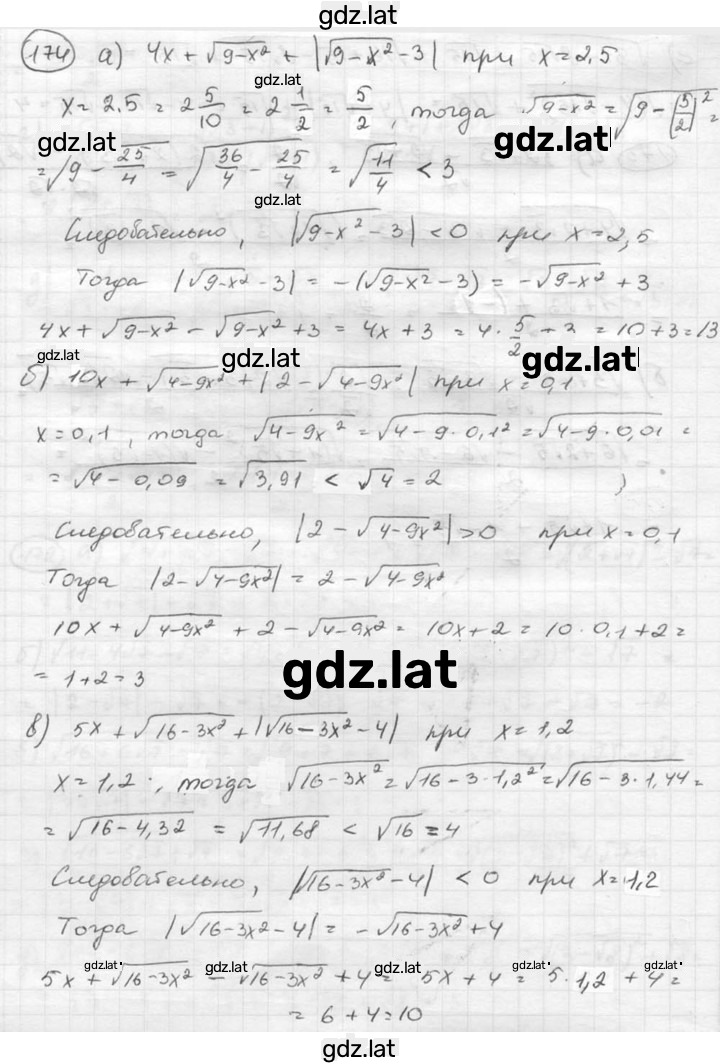 gdz.lat
174 а) 4x + √9-x² + |√9-x² - 3| при x = 2,5
gdz.lat
x = 2.5 = 2 5/10 = 2 1/2 = 5/2, тогда √9-x² = √9 - (5/2)² =
gdz.lat gdz.lat
= √9 - 25/4 = √36/4 - 25/4 = √11/4 < 3
gdz.lat
Следовательно, |√9-x² - 3| < 0 при x = 2,5
Тогда |√9-x² - 3| = -(√9-x² - 3) = -√9-x² + 3
4x + √9-x² - √9-x² + 3 = 4x + 3 = 4 · 5/2 + 3 = 10 + 3 = 13
gdz.lat gdz.lat gdz.lat
б) 10x + √4-9x² + |2 - √4-9x²| при x = 0,1
x = 0,1, тогда √4-9x² = √4-9·0,1² = √4-9·0,01 =
= √4-0,09 = √3,91 < √4 = 2
Следовательно, |2 - √4-9x²| > 0 при x = 0,1
Тогда |2-√4-9x²| = 2 - √4-9x²
10x + √4-9x² + 2 - √4-9x² = 10x + 2 = 10 · 0,1 + 2 =
= 1 + 2 = 3
gdz.lat
в) 5x + √16-3x² + |√16-3x² - 4| при x = 1,2
x = 1,2, тогда √16-3x² = √16-3·1,2² = √16-3·1,44 =
= √16-4,32 = √11,68 < √16 = 4
Следовательно, |√16-3x² - 4| < 0 при x = 1,2
Тогда |√16-3x² - 4| = -√16-3x² + 4
gdz.lat gdz.lat gdz.lat gdz.lat gdz.lat
5x + √16-3x² - √16-3x² + 4 = 5x + 4 = 5 · 1,2 + 4 =
= 6 + 4 = 10
gdz.lat